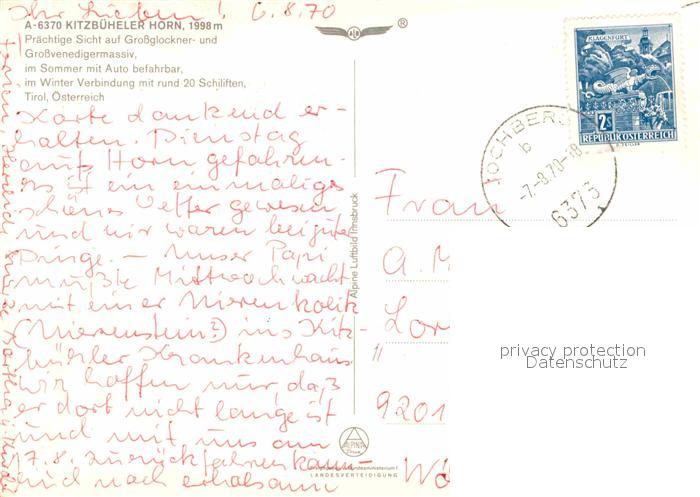 Ihr Lieben! 6.8.70
A-6370 KITZBÜHELER HORN, 1998 m
Prächtige Sicht auf Großglockner- und
Großvenedigermassiv,
im Sommer mit Auto befahrbar,
im Winter Verbindung mit rund 20 Schiliften,
Tirol, Österreich
Karte dankend er-
halten. Dienstag
aufs Horn gefahren.
es ist ein einmaliges
schönes Wetter gewesen
und wir waren bei guter
Dinge. – Unser Papi
mußte Mittwoch nacht
mit einer Nierenkolik
(Nierenstein?) ins Kitz-
bühler Krankenhaus
wir hoffen nur, daß
er dort nicht lange ist
und mit uns am
17.8. zurückfahren kann
und nach
Alpine Luftbild Innsbruck
®
KLAGENFURT
2S
REPUBLIK ÖSTERREICH
JOCHBERG
b
-7.-8.70-18
6373
Frau
A. M
Lor
11
9201
privacy protection
Datenschutz
ALPINE
LANDESVERTEIDIGUNG